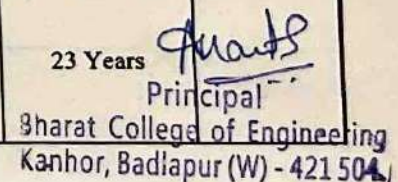 23 Years
Principal
Bharat College of Engineering
Kanhor, Badlapur (W) - 421 504